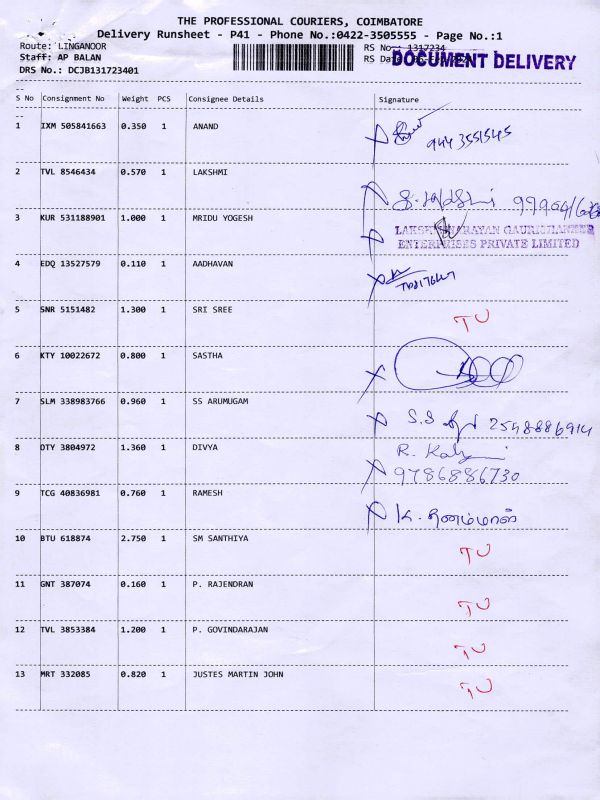 THE PROFESSIONAL COURIERS, COIMBATORE
Delivery Runsheet - P41 - Phone No.:0422-3505555 - Page No.:1
Route: LINGANOOR RS No.: 1317234
Staff: AP BALAN RS Da DOCUMENT DELIVERY
DRS No.: DCJB131723401
S No Consignment No Weight PCS Consignee Details Signature
1 IXM 505841663 0.350 1 ANAND
9443551545
2 TVL 8546434 0.570 1 LAKSHMI
3 KUR 531188901 1.000 1 MRIDU YOGESH
ENTERPRISES PRIVATE LIMITED
4 EDQ 13527579 0.110 1 AADHAVAN
5 SNR 5151482 1.300 1 SRI SREE TU
6 KTY 10022672 0.800 1 SASTHA
7 SLM 338983766 0.960 1 SS ARUMUGAM
S.S 2548886914
8 DTY 3804972 1.360 1 DIVYA R.
9786886730
9 TCG 40836981 0.760 1 RAMESH K.
10 BTU 618874 2.750 1 SM SANTHIYA TU
11 GNT 387074 0.160 1 P. RAJENDRAN TU
12 TVL 3853384 1.200 1 P. GOVINDARAJAN TU
13 MRT 332085 0.820 1 JUSTES MARTIN JOHN TU